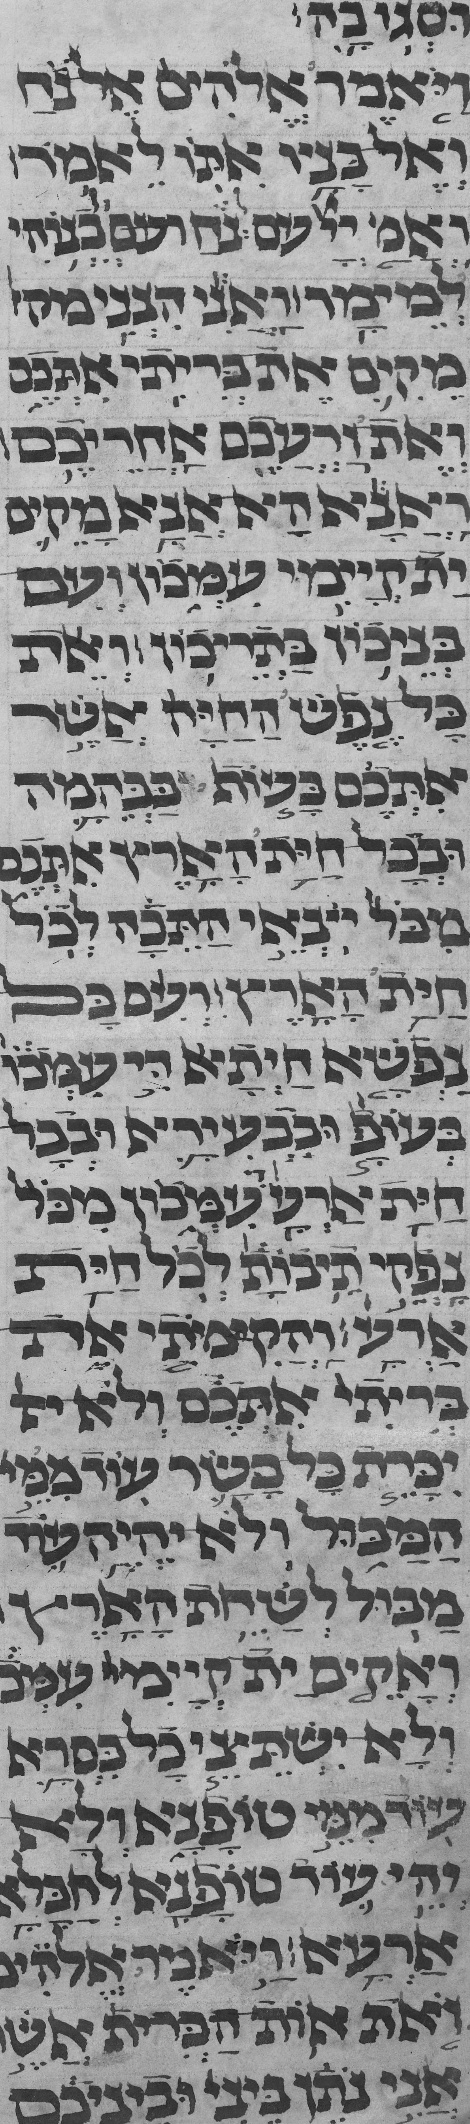 וסגו בה׃
ויאמר אלהים אל נח
ואל בניו אתו לאמר׃
ואמ׳ יי׳ עם נח ועם בנוהי
למימר׃ ואני הנני מקי
מקים את בריתי אתכם
ואת זרעכם אחריכם׃
ואנא הא אנא מקים
ית קיימי עמכון ועם
בניכון בתריכון׃ ואת
כל נפש החיה אשר
אתכם בעוף בבהמה
ובכל חית הארץ אתכם
מכל יצאי התבה לכל
חית הארץ׃ ועם כל
נפשא חיתא די עמכו
בעופ ובבעירא ובכל
חית ארע עמכון מכל
נפקי תיבות לכל חית
ארע׃ והקימתי את
בריתי אתכם ולא י
יכרת כל בשר עוד ממי
המבול ולא יהיה עוד
מבול לשחת הארץ׃
ואקים ית קיימי עמכ
ולא ישתצי כל בסרא
עוד ממי טופנא ולא
יהי עוד טופנא לחבלא
ארעא׃ ויאמר אלהים
זאת אות הברית אשר
אני נתן ביני וביניכם